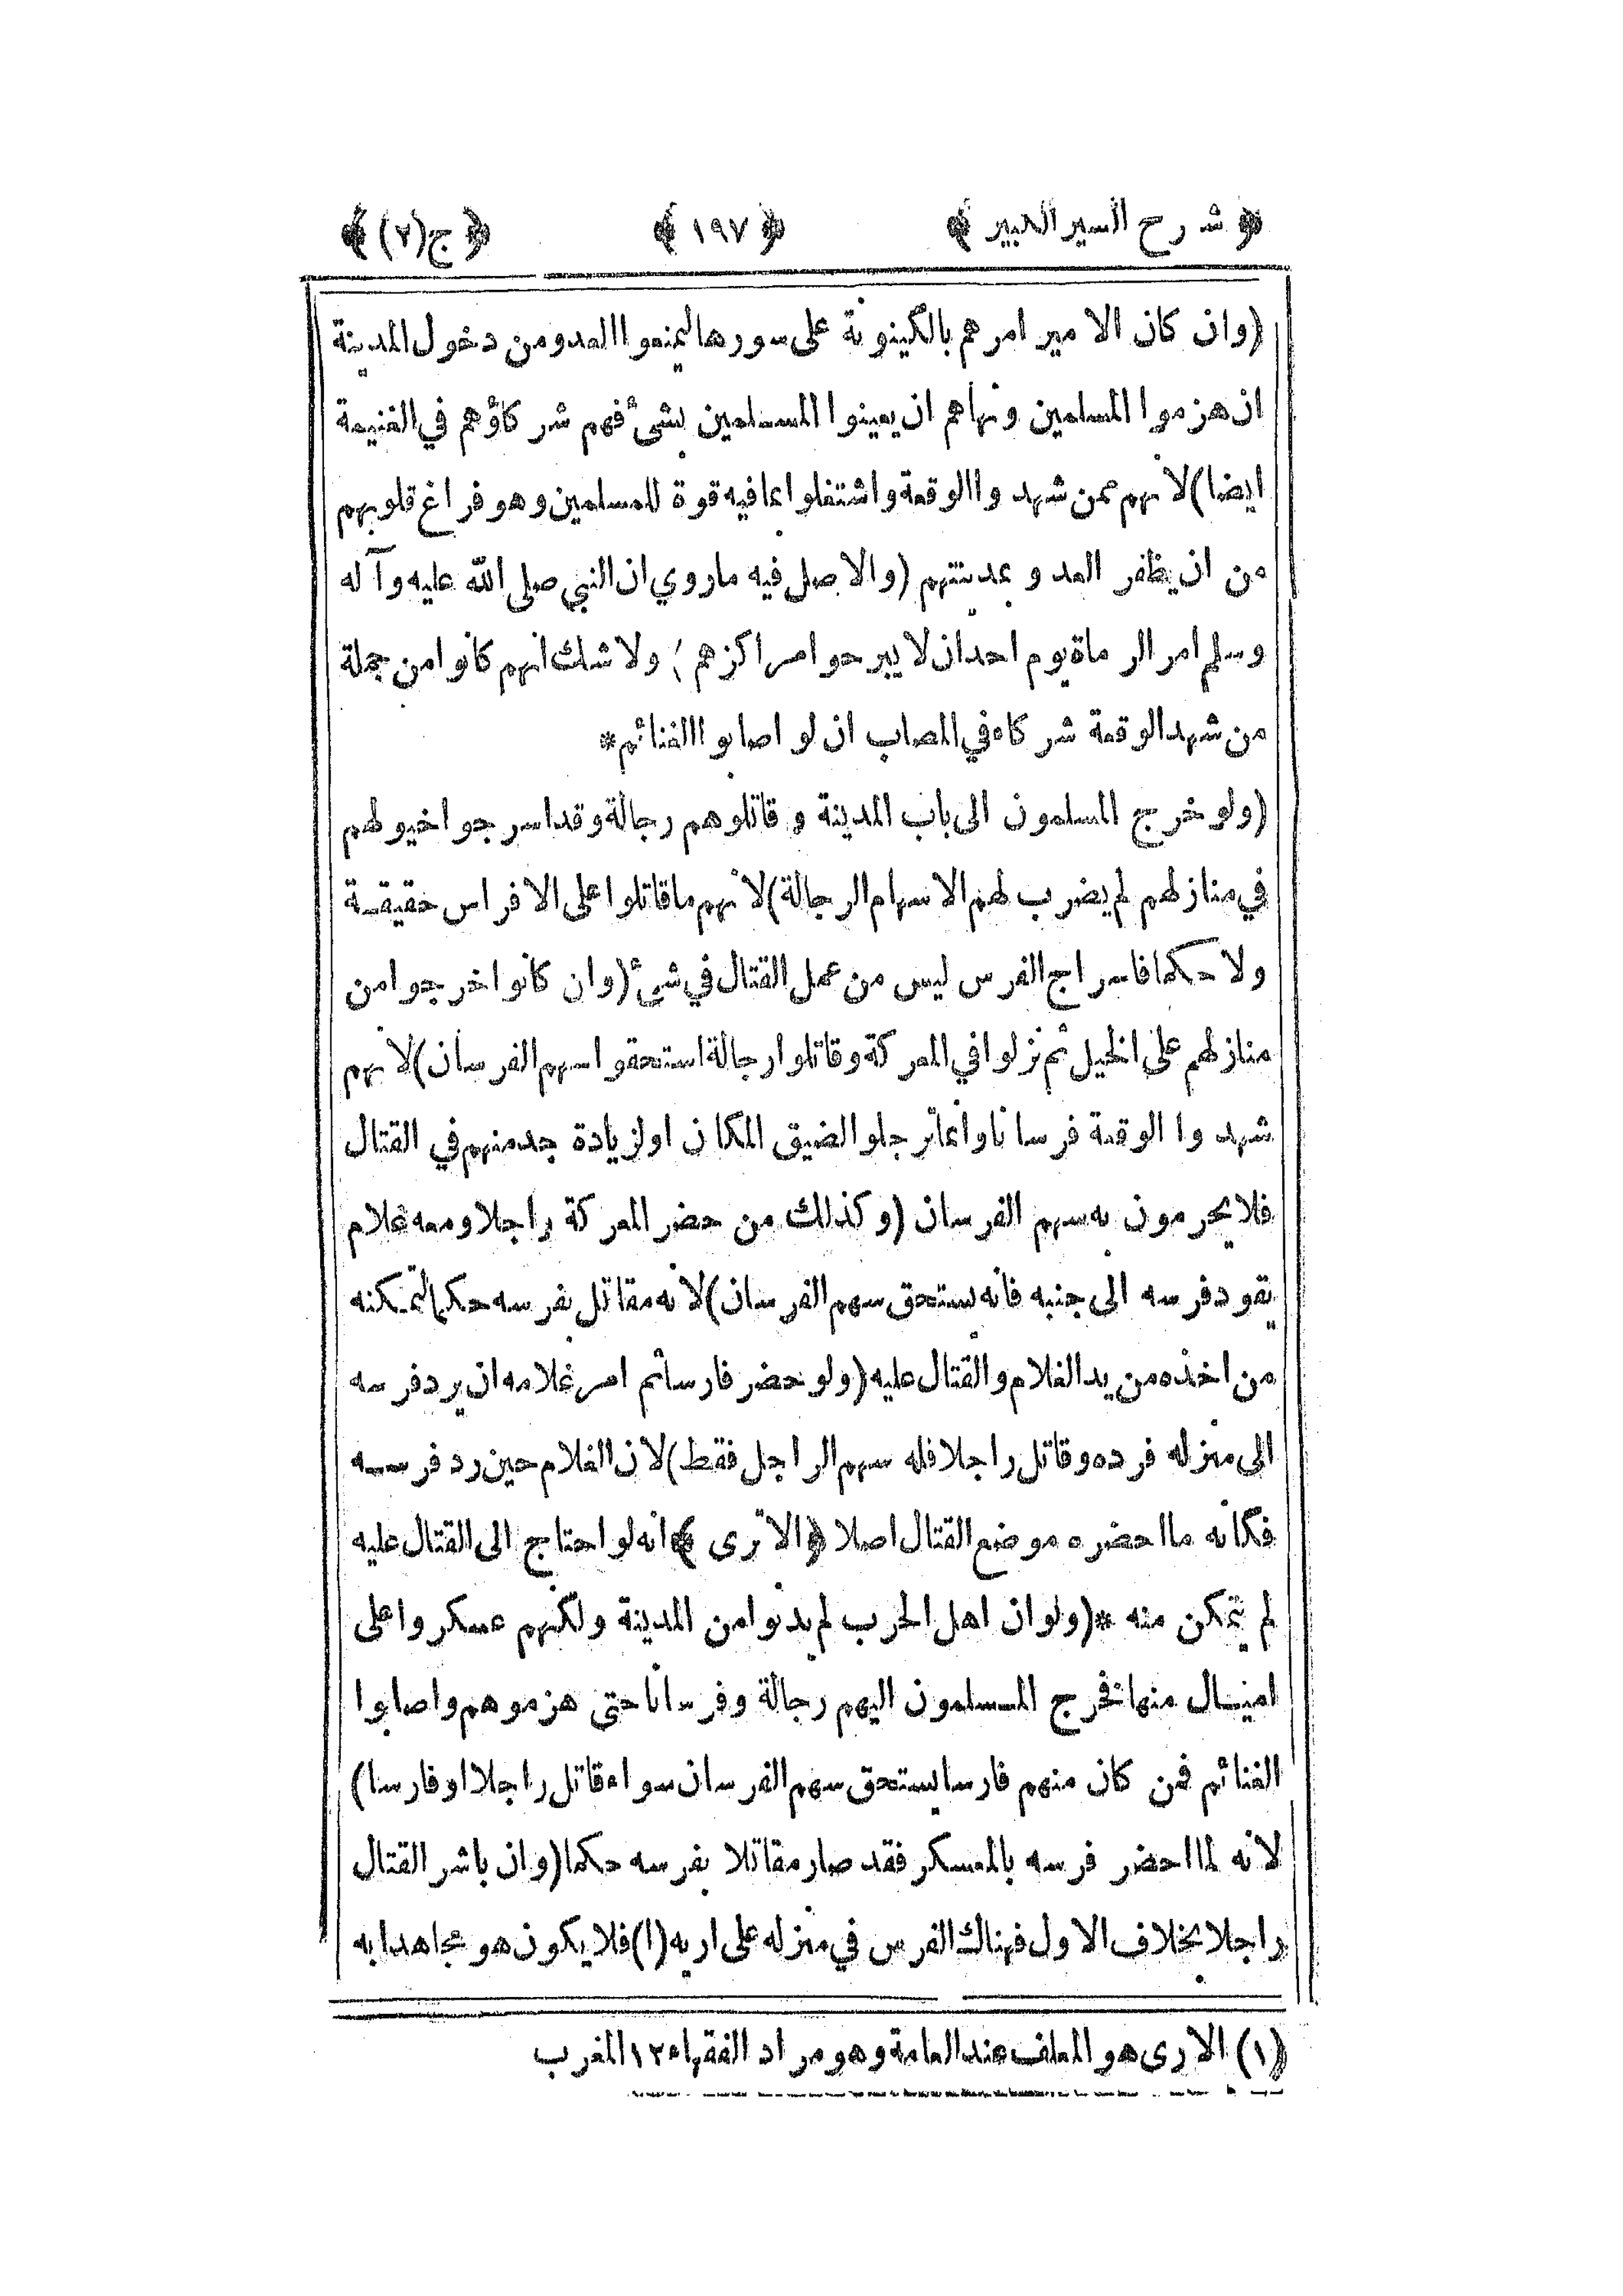 ﴿ شرح السير الكبير ﴾ ﴿ ١٩٧ ﴾ ﴿ ج (٢) ﴾
(وان كان الامير امرهم بالكينونة على سورها ليمنعوا العدو من دخول المدينة
ان هزموا المسلمين ونهاهم ان يعينوا المسلمين بشئ فهم شركاؤهم في الغنيمة
ايضا) لانهم ممن شهدوا الوقعة واشتغلوا بما فيه قوة للمسلمين وهو فراغ قلوبهم
من ان يظفر العدو بمدينتهم (والاصل فيه ماروي ان النبي صلى الله عليه وآله
وسلم امر الرماة يوم احد ان لا يبرحوا مراكزهم) ولا شك انهم كانوا من جملة
من شهد الوقعة شركاء في المصاب ان لو اصابوا الغنائم*
(ولو خرج المسلمون الى باب المدينة وقاتلوهم رجالة وقد اسرجوا خيولهم
في منازلهم لم يضرب لهم الا سهام الرجالة) لانهم ما قاتلوا على الافراس حقيقة
ولا حكما فاسراج الفرس ليس من عمل القتال في شئ (وان كانوا خرجوا من
منازلهم على الخيل ثم نزلوا في المعركة وقاتلوا رجالة استحقوا سهم الفرسان) لانهم
شهدوا الوقعة فرسانا وانما ترجلوا لضيق المكان او لزيادة جد منهم في القتال
فلا يحرمون به سهم الفرسان (وكذلك من حضر المعركة راجلا ومعه غلام
يقود فرسه الى جنبه فانه يستحق سهم الفرسان) لانه مقاتل بفرسه حكما لتمكنه
من اخذه من يد الغلام والقتال عليه (ولو حضر فارسا ثم امر غلامه ان يرد فرسه
الى منزله فرده وقاتل راجلا فله سهم الراجل فقط) لان الغلام حين رد فرسه
فكانه ما احضره موضع القتال اصلا ﴿ الا ترى ﴾ انه لو احتاج الى القتال عليه
لم يتمكن منه *(ولو ان اهل الحرب لم يدنوا من المدينة ولكنهم عسكروا على
اميال منها فخرج المسلمون اليهم رجالة وفرسانا حتى هزموهم واصابوا
الغنائم فمن كان منهم فارسا يستحق سهم الفرسان سواء قاتل راجلا او فارسا)
لانه لما احضر فرسه بالمعسكر فقد صار مقاتلا بفرسه حكما (وان باشر القتال
راجلا بخلاف الاول فهناك الفرس في منزله على اريه (١) فلا يكون هو مجاهدا به
(١) الارى هو المعلف عند العامة وهو مراد الفقهاء ١٢ المغرب